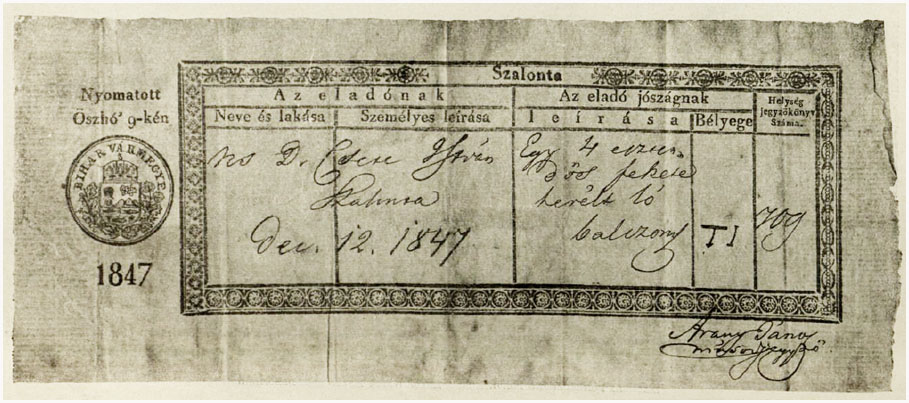 Szalonta
Nyomatott
Oszhó' 9-kén
BIHAR VÁRMEGYE
1847
Az eladónak
Neve és lakása
Személyes leírása
Az eladó jószágnak
leírása
Bélyege
Helység
jegyzőkönyv
Száma.
ns D. Csere István
Szalonta
Dec. 12. 1847
Egy 4 eszten-
dős fekete
herélt ló
TI
709
Arany János